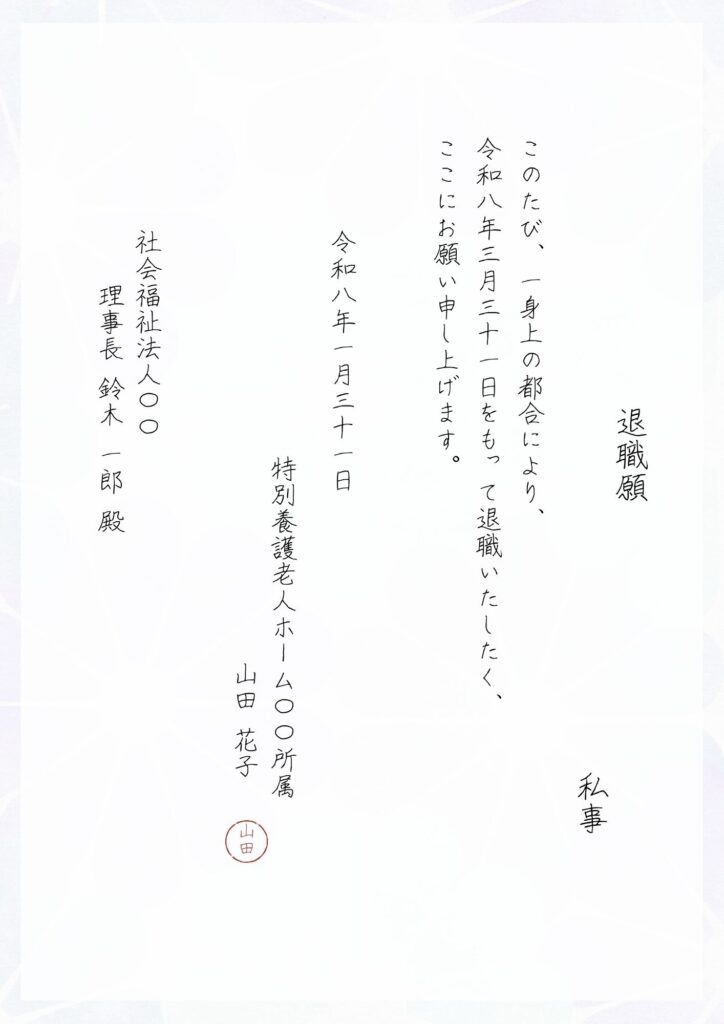 退職願
私事
このたび、一身上の都合により、
令和八年三月三十一日をもって退職いたしたく、
ここにお願い申し上げます。
令和八年一月三十一日
特別養護老人ホーム〇〇所属
山田 花子
山田
社会福祉法人〇〇
理事長 鈴木 一郎 殿